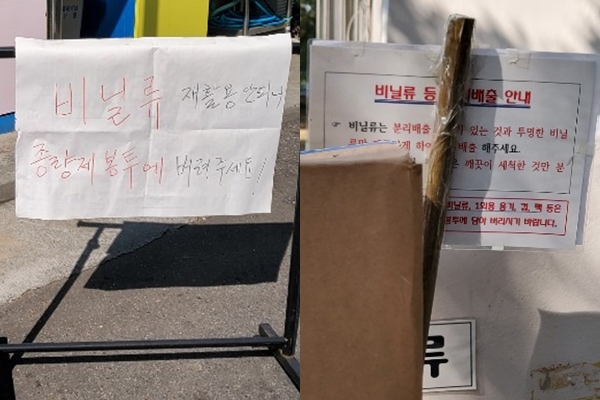 비닐류 재활용 안되니
종량제 봉투에 버려주세요!
비닐류 등 배출 안내
☞ 비닐류는 분리배출 있는 것과 투명한 비닐
배출 해주세요.
깨끗이 세척한 것만 분
비닐류, 1회용 용기, 컵, 팩 등은
담아 버리시기 바랍니다.
류